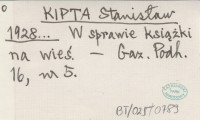 KIPTA Stanisław
1928... W sprawie książki
na wieś. — Gaz. Podh.
16, nr 5.
BT/025/0789